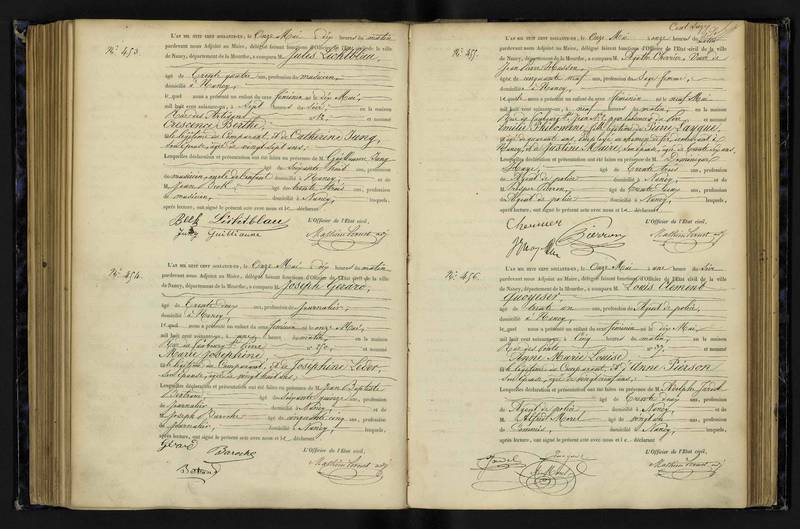 N.º 453.
L'AN MIL HUIT CENT SOIXANTE-UN, le Onze Mai dix heures du matin
pardevant nous Adjoint au Maire, délégué faisant fonctions d'Officier de l'Etat civil de la ville
de Nancy, département de la Meurthe, a comparu M. Jules Lichtblau,
âgé de Trente quatre ans, profession de musicien,
domicilié à Nancy,
lequel nous a présenté un enfant du sexe féminin né le dix Mai,
mil huit cent soixante-un, à Sept heures du soir, en la maison
Rue des Artisans et nommé
Crescence Berthe,
fille légitime du Comparant, et de Catherine Jung,
son épouse, âgée de vingt sept ans,
Lesquelles déclaration et présentation ont été faites en présence de M. Guillaume Jung
âgé de Soixante huit ans, profession
de musicien, domicilié à Nancy, et de
M. Jean Beck âgé de trente trois ans, profession
de musicien, domicilié à Nancy, lesquels,
après lecture, ont signé le présent acte avec nous et le déclarant
Beck Lichtblau
Jung Guilliaume
L'Officier de l'Etat civil,
N.º 454.
L'AN MIL HUIT CENT SOIXANTE-UN, le Onze Mai dix heures du matin
pardevant nous Adjoint au Maire, délégué faisant fonctions d'Officier de l'Etat civil de la ville
de Nancy, département de la Meurthe, a comparu M. Joseph Gérard,
âgé de Trente cinq ans, profession de journalier,
domicilié à Nancy,
lequel nous a présenté un enfant du sexe féminin né le onze Mai,
mil huit cent soixante-un, à une heure du matin, en la maison
Rue du faubourg St. Pierre nº 250, et nommé
Marie Joséphine
fille légitime du Comparant, et de Joséphine Leder,
son épouse, âgée de vingt huit ans,
Lesquelles déclaration et présentation ont été faites en présence de M. Jean Baptiste
Bertrand, âgé de Soixante quinze ans, profession
de journalier, domicilié à Nancy, et de
M. Joseph Baroche âgé de cinquante cinq ans, profession
de journalier, domicilié à Nancy, lesquels,
après lecture, ont signé le présent acte avec nous et le déclarant
Gérard Baroche
Bertrand
L'Officier de l'Etat civil,
N.º 455.
L'AN MIL HUIT CENT SOIXANTE-UN, le Onze Mai à onze heures du matin
pardevant nous Adjoint au Maire, délégué faisant fonctions d'Officier de l'Etat civil de la ville
de Nancy, département de la Meurthe, a comparu M. Agathe
Jean Pierre Husson,
âgée de cinquante neuf ans, profession de Sage femme,
domiciliée à Nancy,
laquelle nous a présenté un enfant du sexe féminin né le neuf Mai
mil huit cent soixante-un, à neuf heures du matin, en la maison
Rue du faubourg St. Jean et nommé
Emilie Philomène, fille légitime de Pierre
Nancy, et de Justine Maire, son épouse, âgée de trente six ans,
Lesquelles déclaration et présentation ont été faites en présence de M. Dominique
âgé de Trente trois ans, profession
de Agent de police domicilié à Nancy, et de
M. Prosper Pierron, âgé de Trente cinq ans, profession
de Agent de police domicilié à Nancy, lesquels,
après lecture, ont signé le présent acte avec nous et la déclarante
Pierron
L'Officier de l'Etat civil,
N.º 456.
L'AN MIL HUIT CENT SOIXANTE-UN, le Onze Mai une heure du soir
pardevant nous Adjoint au Maire, délégué faisant fonctions d'Officier de l'Etat civil de la ville
de Nancy, département de la Meurthe, a comparu M. Louis Clément
âgé de trente un ans, profession de Agent de police,
domicilié à Nancy,
lequel nous a présenté un enfant du sexe féminin né le dix Mai,
mil huit cent soixante-un, à Cinq heures du matin, en la maison
nº 39, et nommé
Anne Marie Louise
fille légitime du Comparant, et d'Anne Pierson
son épouse, âgée de vingt cinq ans,
Lesquelles déclaration et présentation ont été faites en présence de M. Adolphe
âgé de Trente cinq ans, profession
de Agent de police domicilié à Nancy, et de
M. Alfred Morel âgé de vingt un ans, profession
de Commis, domicilié à Nancy, lesquels,
après lecture, ont signé le présent acte avec nous et le déclarant
L'Officier de l'Etat civil,